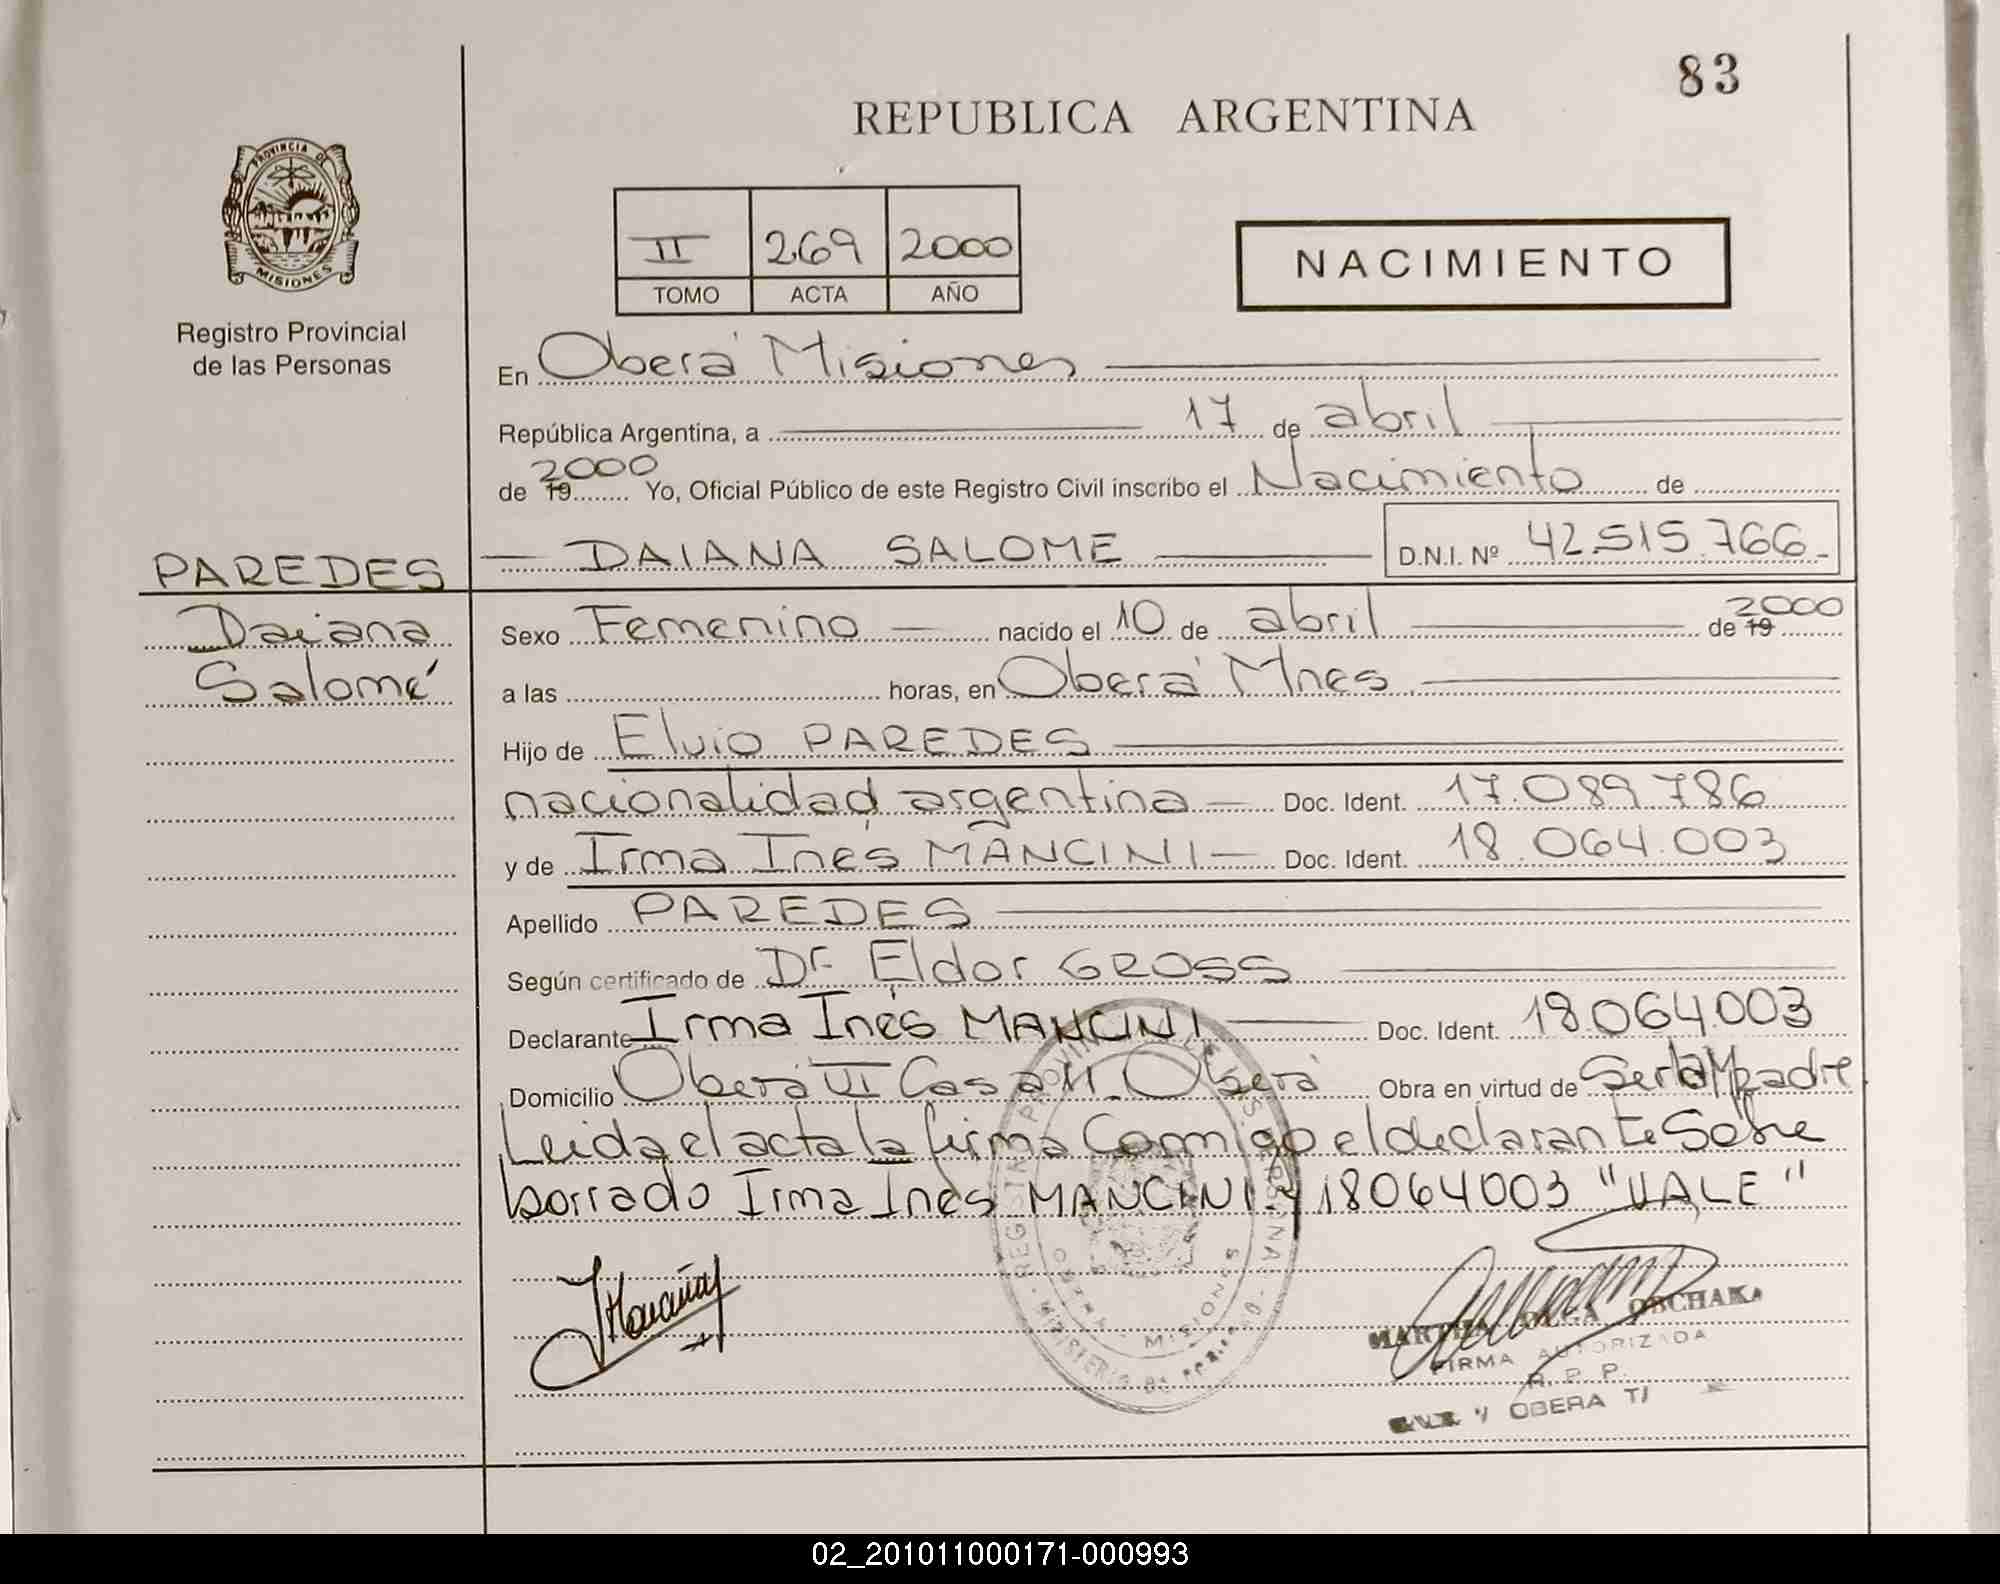 83
REPUBLICA ARGENTINA
PROVINCIA DE
MISIONES
Registro Provincial
de las Personas
II 269 2000
TOMO ACTA AÑO
NACIMIENTO
En Oberá Misiones
República Argentina, a 17 de abril
de 19 2000 Yo, Oficial Público de este Registro Civil inscribo el Nacimiento de
PAREDES DAIANA SALOME D.N.I. Nº 42.515.766
Daiana Sexo Femenino nacido el 10 de abril de 19 2000
Salomé a las horas, en Oberá Mnes
Hijo de Elvio PAREDES
nacionalidad argentina Doc. Ident. 17.089.786
y de Irma Inés MANCINI Doc. Ident. 18.064.003
Apellido PAREDES
Según certificado de Dr. Eldor GROSS
Declarante Irma Inés MANCINI Doc. Ident. 18.064.003
Domicilio Oberá VI Casa Oberá Obra en virtud de Ser la Madre
Leida el acta la firma Conmigo el declarante Sobre
borrado Irma Ines MANCINI y 18064003 "VALE"
OBCHAKA
FIRMA AUTORIZADA
R. P. P.
OBERA
MISIONES
02_201011000171-000993